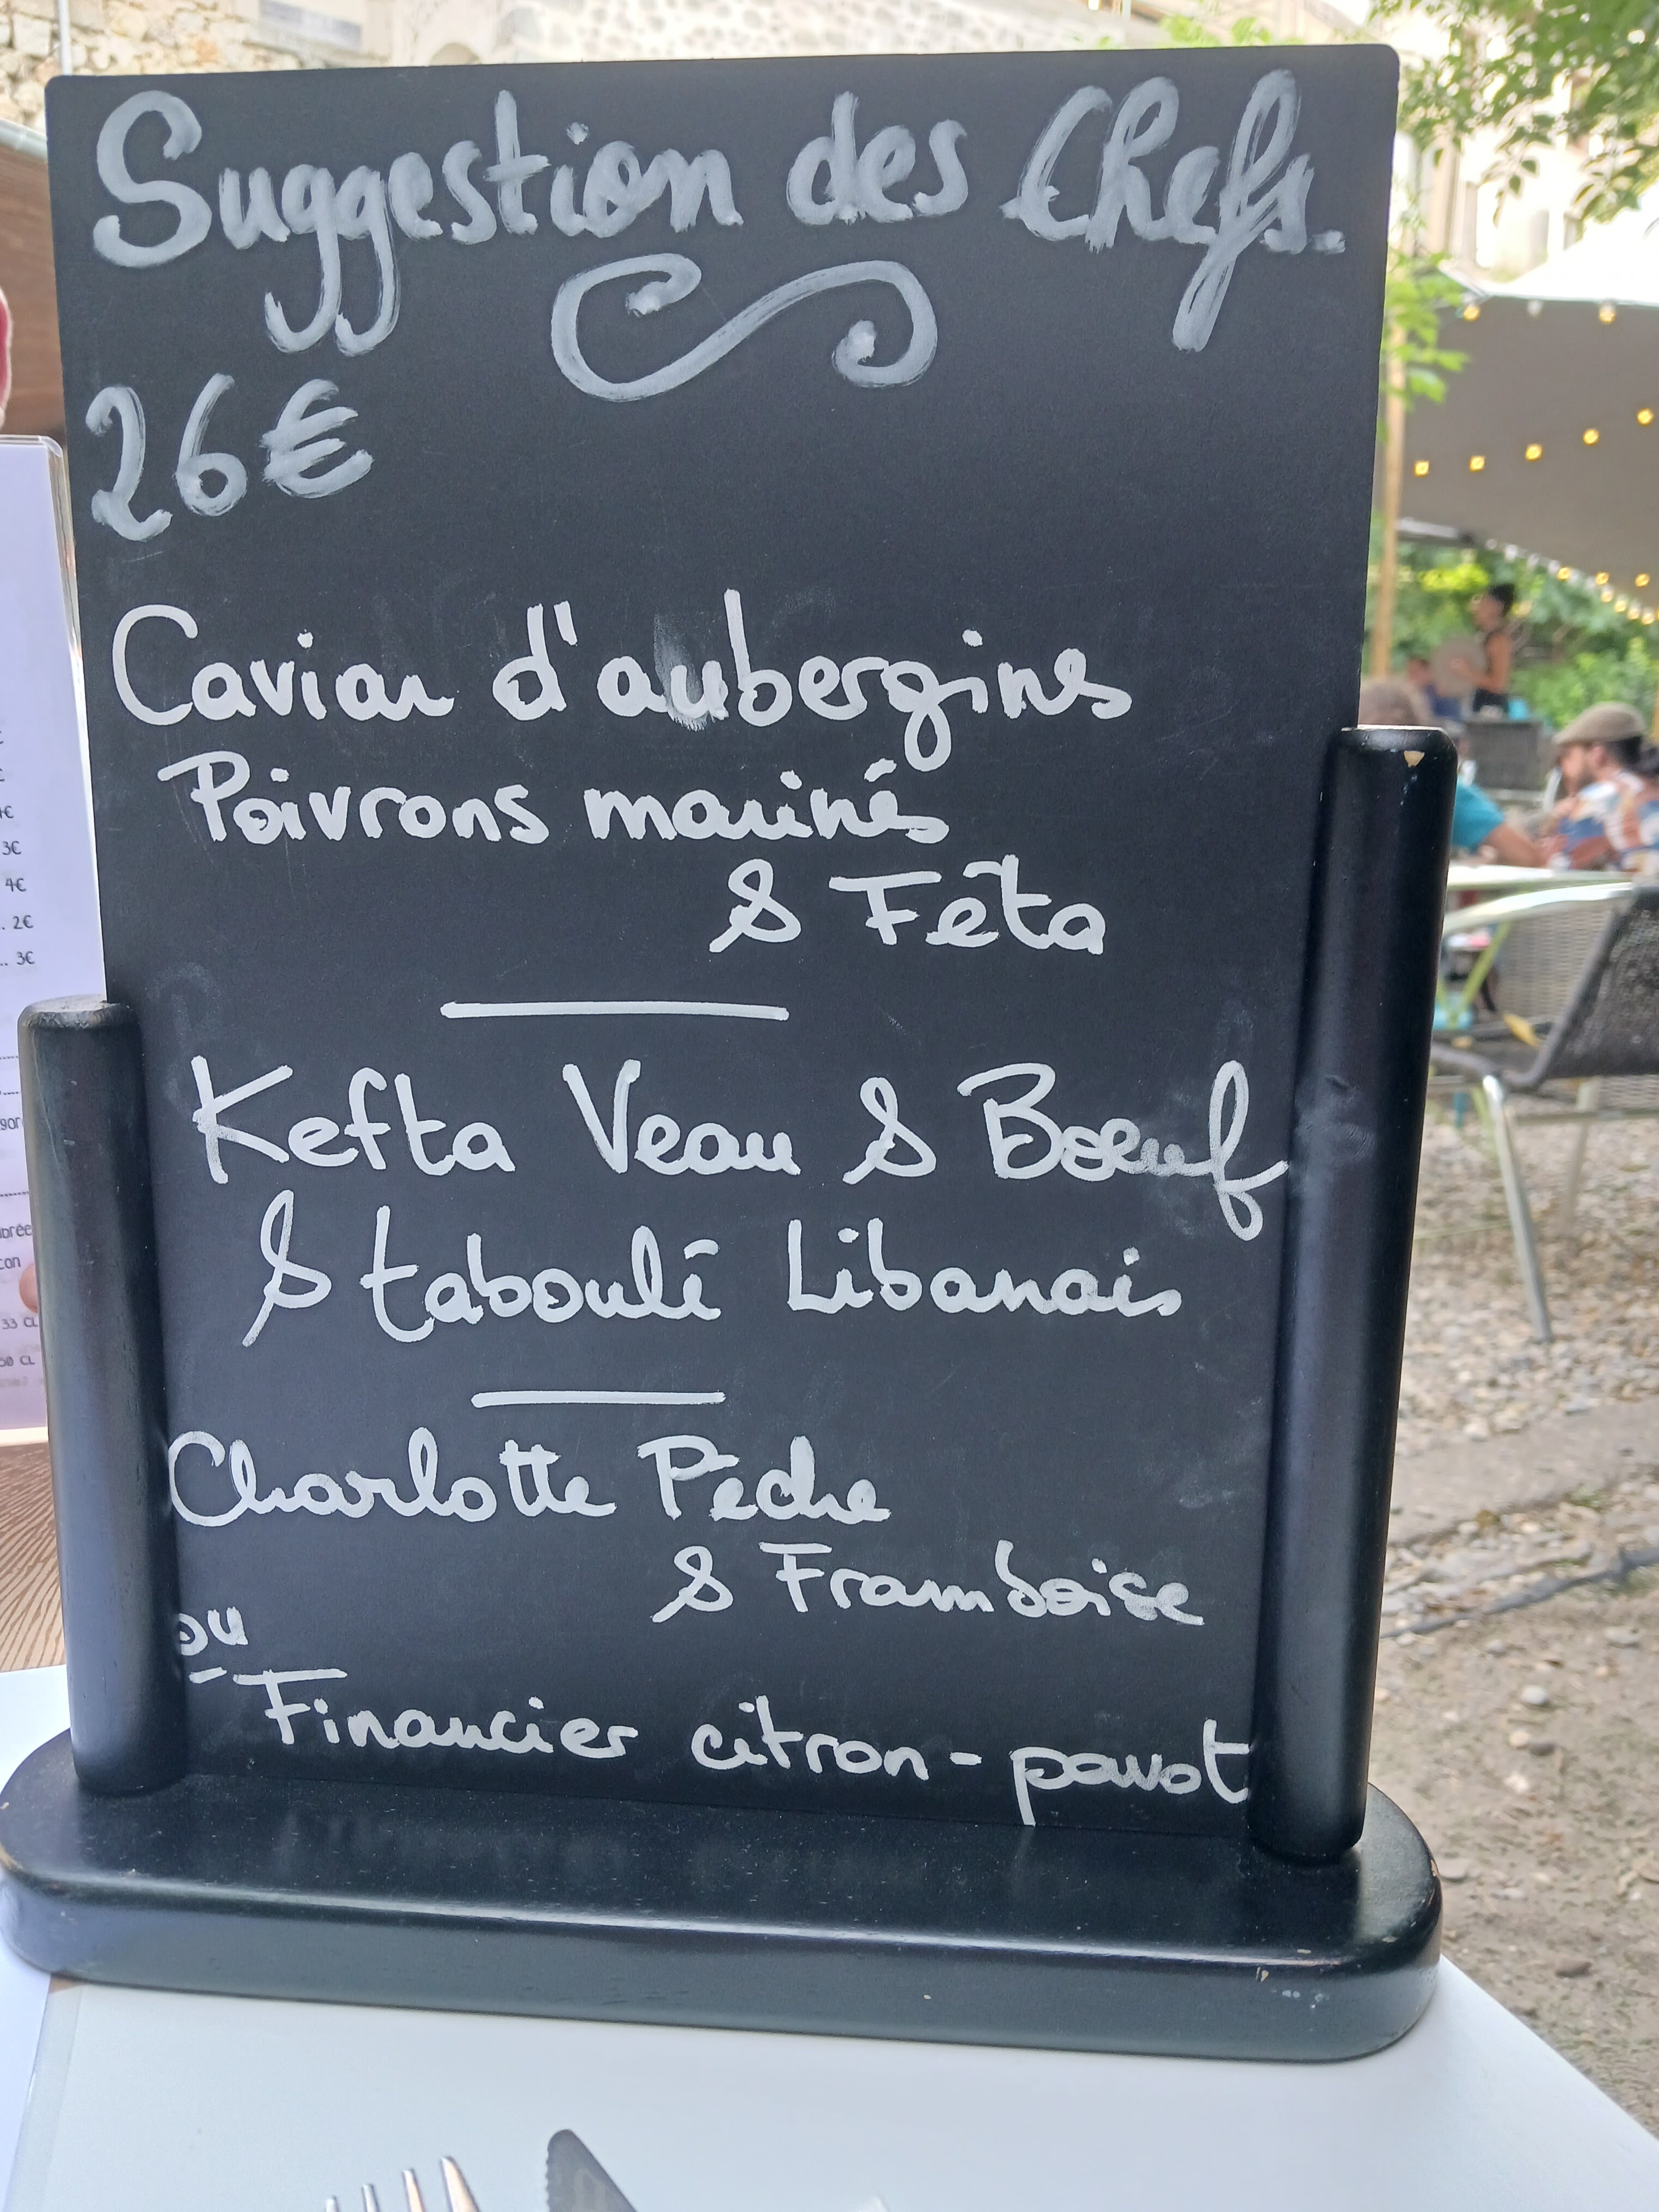 Suggestion des Chefs.
26€
Caviar d'aubergines
Poivrons marinés
& Féta
Kefta Veau & Boeuf
& taboulé Libanais
Charlotte Pêche
& Framboise
ou
Financier citron-pavot
3€
4€
.. 2€
.. 3€
33 CL
50 CL